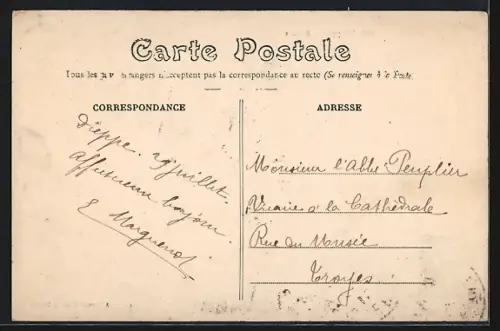 Carte Postale
Tous les pays étrangers n'acceptent pas la correspondance au recto (Se renseigner à la Poste)
CORRESPONDANCE
Dieppe. 29 juillet.
affectueux bonjour.
E
ADRESSE
Monsieur l'Abbé Peuplier
Vicaire à la Cathédrale
Rue du Musée
Troyes